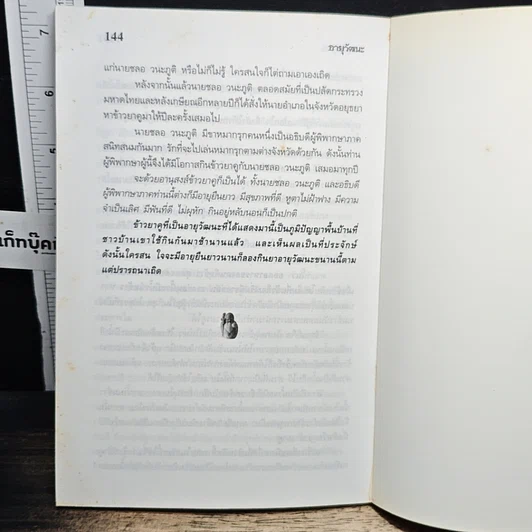 144
อายุวัฒนะ
แก่นายชลอ วนะภูติ หรือไม่ก็ไม่รู้ ใครสนใจก็ไต่ถามเอาเองเถิด
หลังจากนั้นแล้วนายชลอ วนะภูติ ตลอดสมัยที่เป็นปลัดกระทรวง
มหาดไทยและหลังเกษียณอีกหลายปีก็ได้สั่งให้นายอำเภอในจังหวัดอยุธยา
หาข้าวยาคูมาให้ปีละครั้งเสมอไป
นายชลอ วนะภูติ มีขาหมากรุกคนหนึ่งเป็นอธิบดีผู้พิพากษาภาค
สนิทสนมกันมาก รักที่จะไปเล่นหมากรุกตามต่างจังหวัดด้วยกัน ดังนั้นท่าน
ผู้พิพากษาผู้นี้จึงได้มีโอกาสกินข้าวยาคูกับนายชลอ วนะภูติ เสมอมาทุกปี
จะด้วยอานุสงส์ข้าวยาคูก็เป็นได้ ทั้งนายชลอ วนะภูติ และอธิบดี
ผู้พิพากษาภาคท่านนี้ต่างก็มีอายุยืนยาว มีสุขภาพที่ดี หูตาไม่ฝ้าฟาง มีความ
จำเป็นเลิศ มีพันที่ดี ไม่ผุหัก กินอยู่หลับนอนก็เป็นปกติ
ข้าวยาคูที่เป็นอายุวัฒนะที่ได้แสดงมานี้เป็นภูมิปัญญาพื้นบ้านที่
ชาวบ้านเขาใช้กินกันมาช้านานแล้ว และเห็นผลเป็นที่ประจักษ์
ดังนั้นใครสน ใจจะมีอายุยืนยาวนานก็ลองกินยาอายุวัฒนะขนานนี้ตาม
แต่ปรารถนาเถิด
เก็ทบุ๊ค